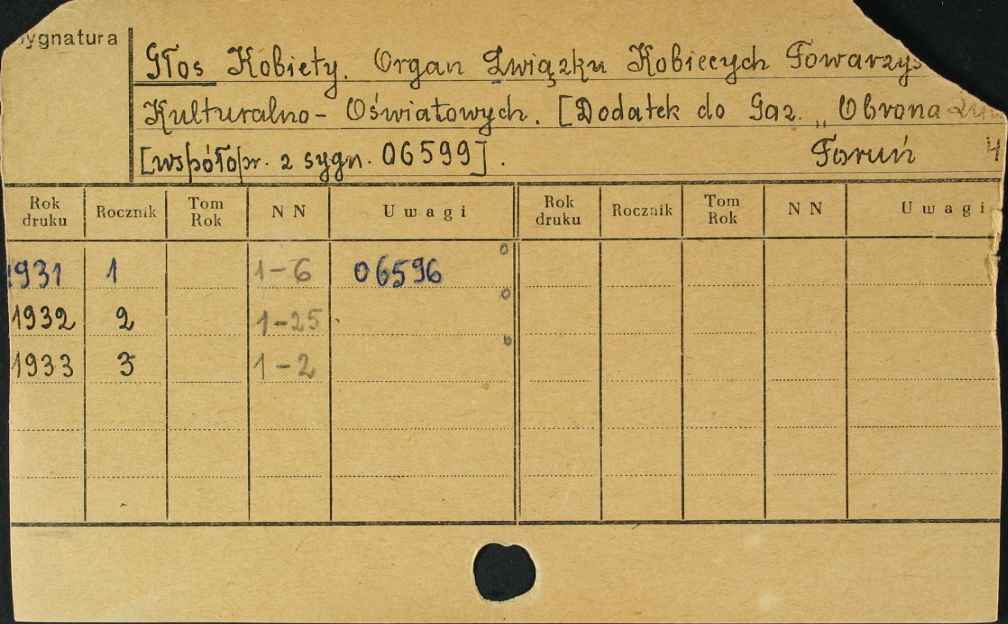 ygnatura
Głos Kobiety. Organ Związku Kobiecych Towarzys
Kulturalno-Oświatowych. [Dodatek do Gaz. „Obrona
[współopr. z sygn. 06599]. Toruń 4
Rok druku Rocznik Tom Rok N N Uwagi Rok druku Rocznik Tom Rok N N Uwagi
1931 1 1-6 06596
1932 2 1-25
1933 3 1-2